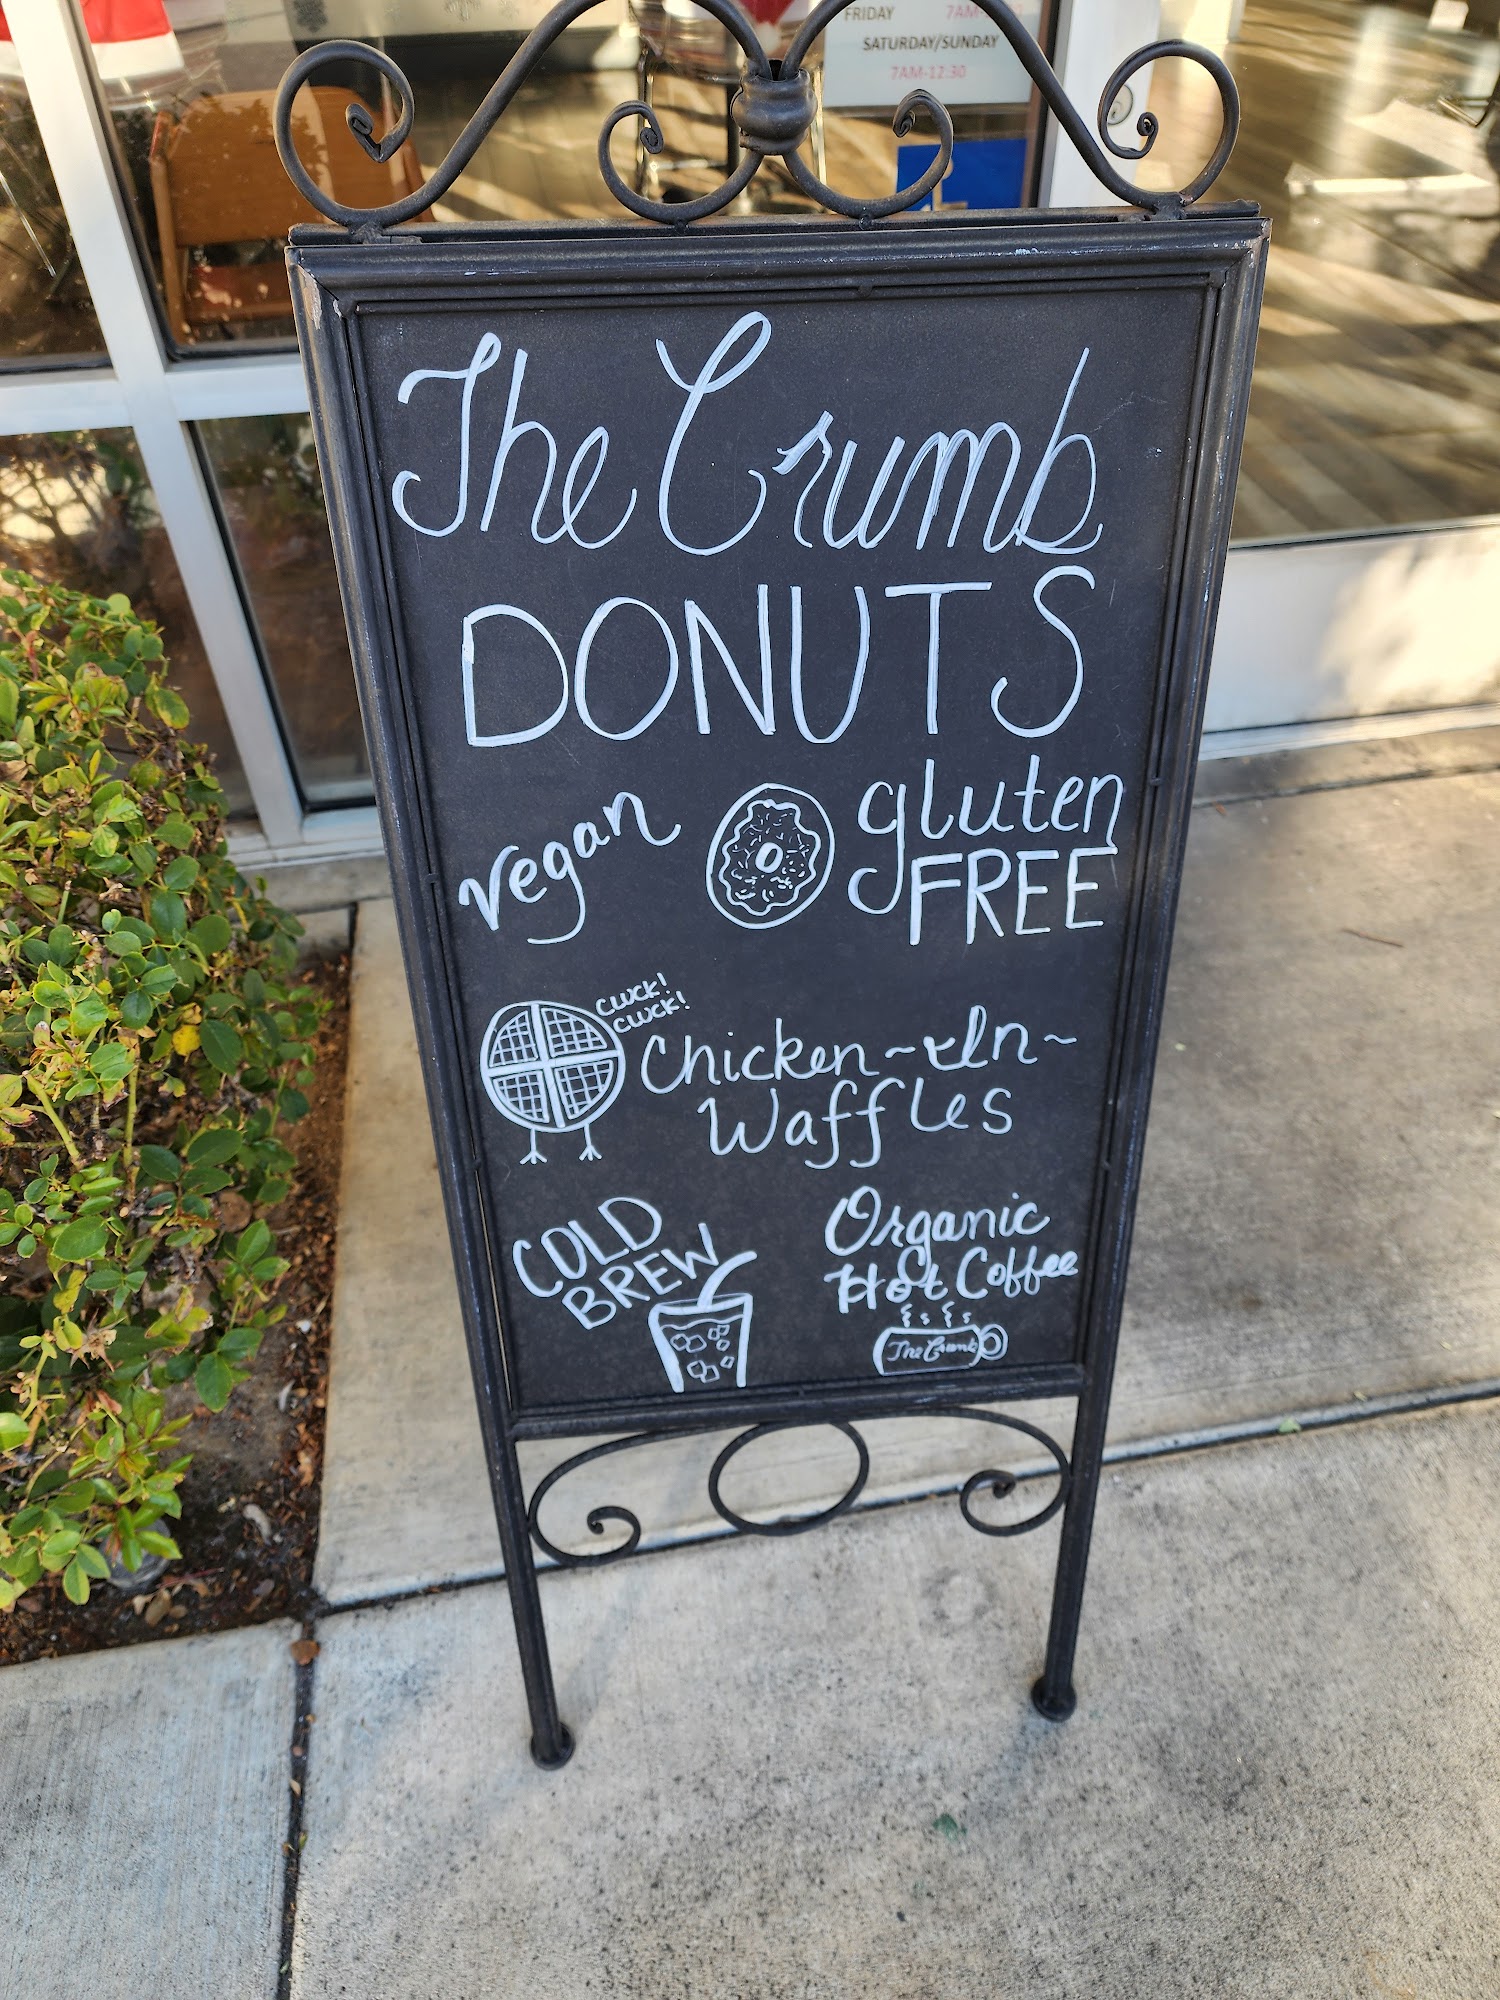 FRIDAY
SATURDAY/SUNDAY
7AM-12:30
The Crumb
DONUTS
vegan
gluten
FREE
CLUCK!
CLUCK!
Chicken~In~
Waffles
COLD
BREW
Organic
Hot Coffee
The Crumb